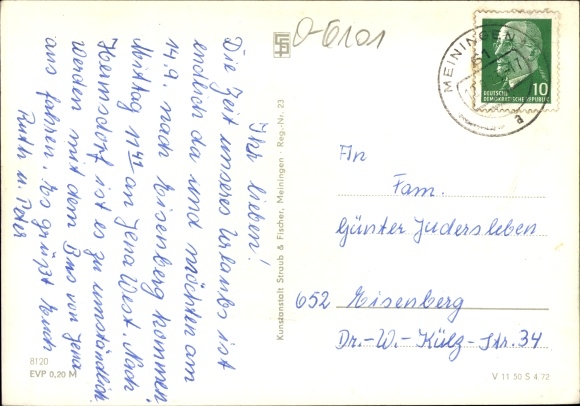 Ihr lieben!
Die Zeit unseres Urlaubs ist
endlich da und möchten am
14.9. nach Eisenberg kommen,
Mittag 11 an Jena West. Nach
Hermsdorf ist es zu umständlich
werden mit dem Bus von Jena
aus fahren. Es grüßt Euch
Ruth u. Peter
8120
EVP 0,20 M
Kunstanstalt Straub & Fischer, Meiningen · Reg.-Nr. 23
0-6101
MEININGEN
61
a
10
DEUTSCHE
DEMOKRATISCHE REPUBLIK
An
Fam.
Günter Judersleben
652 Eisenberg
Dr.-W.-Külz-Str. 34
V 11 50 S 4 72